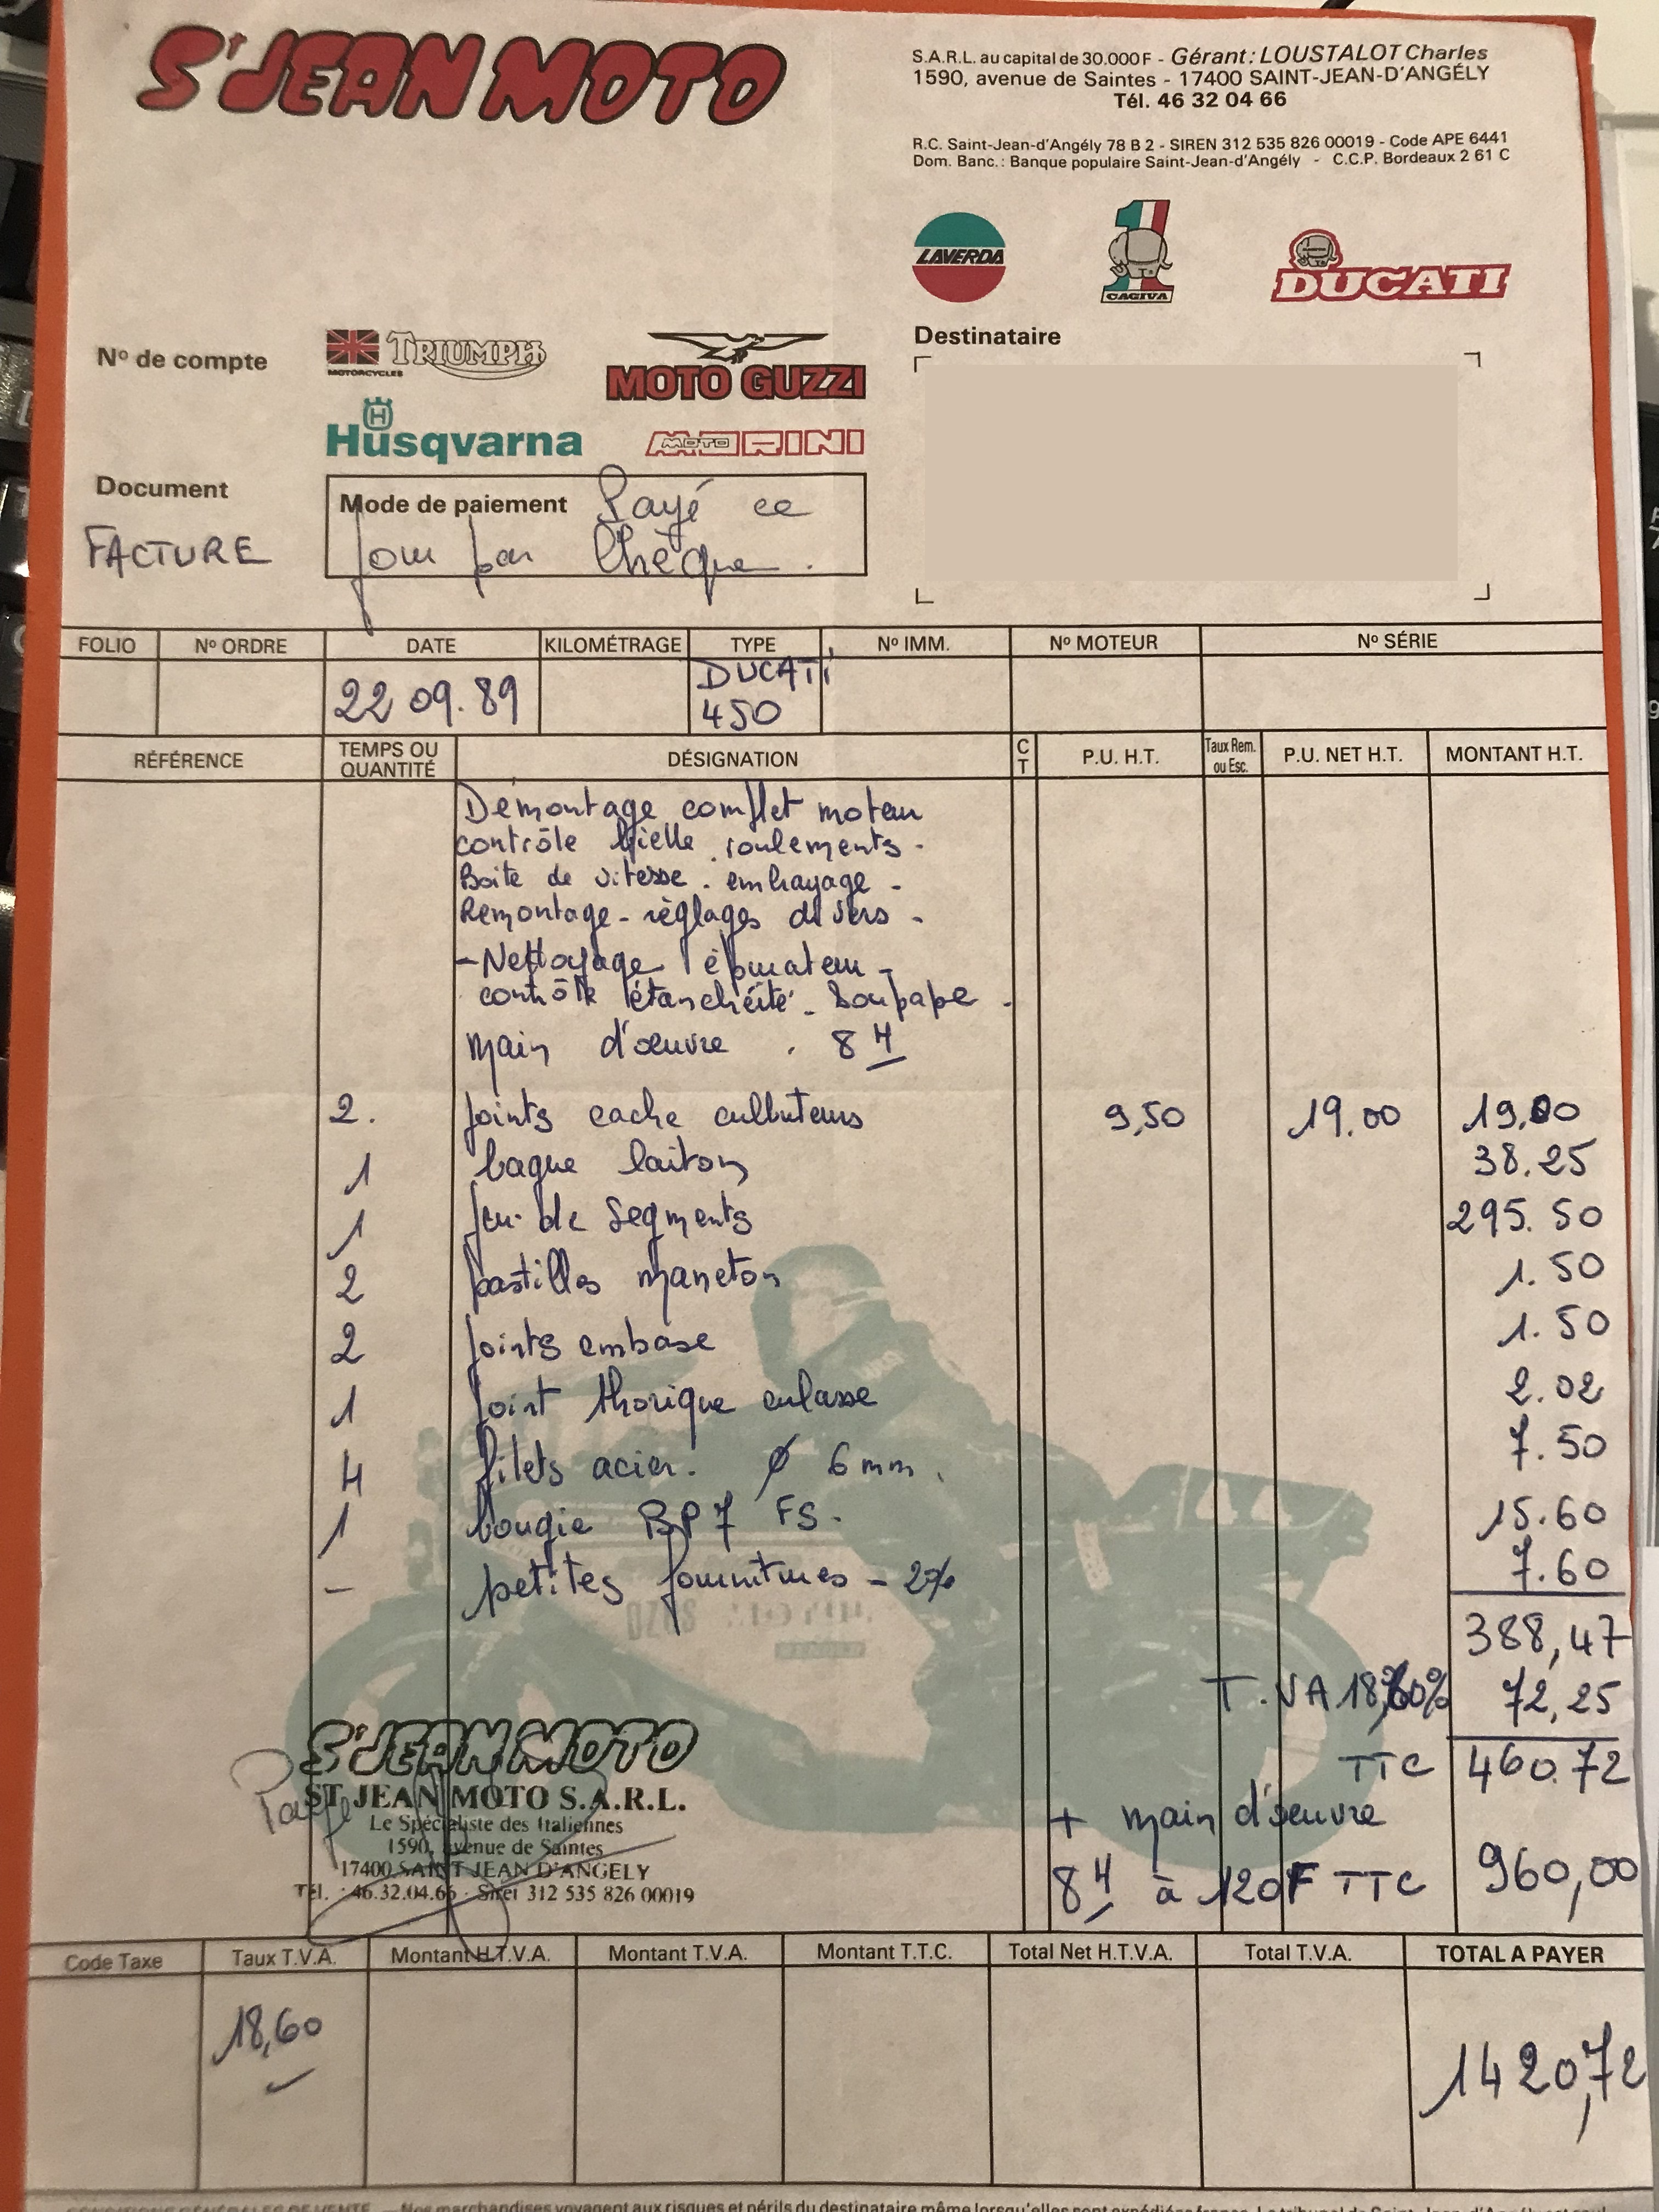 S'JEAN MOTO
S.A.R.L. au capital de 30.000 F - Gérant : LOUSTALOT Charles
1590, avenue de Saintes - 17400 SAINT-JEAN-D'ANGÉLY
Tél. 46 32 04 66
R.C. Saint-Jean-d'Angély 78 B 2 - SIREN 312 535 826 00019 - Code APE 6441
Dom. Banc. : Banque populaire Saint-Jean-d'Angély - C.C.P. Bordeaux 2 61 C
LAVERDA
1
CAGIVA
DUCATI
Destinataire
Nº de compte
TRIUMPH
MOTORCYCLES
MOTO GUZZI
Husqvarna
MOTO MORINI
Document
FACTURE
Mode de paiement Payé ce
jour par Chèque.
FOLIO Nº ORDRE DATE KILOMÉTRAGE TYPE Nº IMM. Nº MOTEUR Nº SÉRIE
22 09.89 DUCATI 450
RÉFÉRENCE TEMPS OU QUANTITÉ DÉSIGNATION CT P.U. H.T. Taux Rem. ou Esc. P.U. NET H.T. MONTANT H.T.
Démontage complet moteur
contrôle bielle . roulements -
Boite de vitesse . embrayage -
Remontage - réglages divers -
- Nettoyage épurateur -
contrôle étanchéité - Soupape -
main d'œuvre . 8 H
2. joints cache culbuteurs 9,50 19.00 19,00
1 bague laiton 38.25
1 jeu de segments 295.50
2 pastilles maneton 1.50
2 joints embase 1.50
1 joint thorique culasse 2.02
4 filets acier. Ø 6 mm. 7.50
1 bougie BP7 FS. 15.60
- petites fournitures - 2% 7.60
388,47
T.VA 18,60% 72,25
TTC 460.72
+ main d'œuvre
8 H à 120F TTC 960,00
S'JEAN MOTO
ST JEAN MOTO S.A.R.L.
Le Spécialiste des Italiennes
1590, avenue de Saintes
17400 SAINT JEAN D'ANGELY
Tél. : 46.32.04.66 - Siret 312 535 826 00019
Code Taxe Taux T.V.A. Montant H.T.V.A. Montant T.V.A. Montant T.T.C. Total Net H.T.V.A. Total T.V.A. TOTAL A PAYER
18,60
1420,72